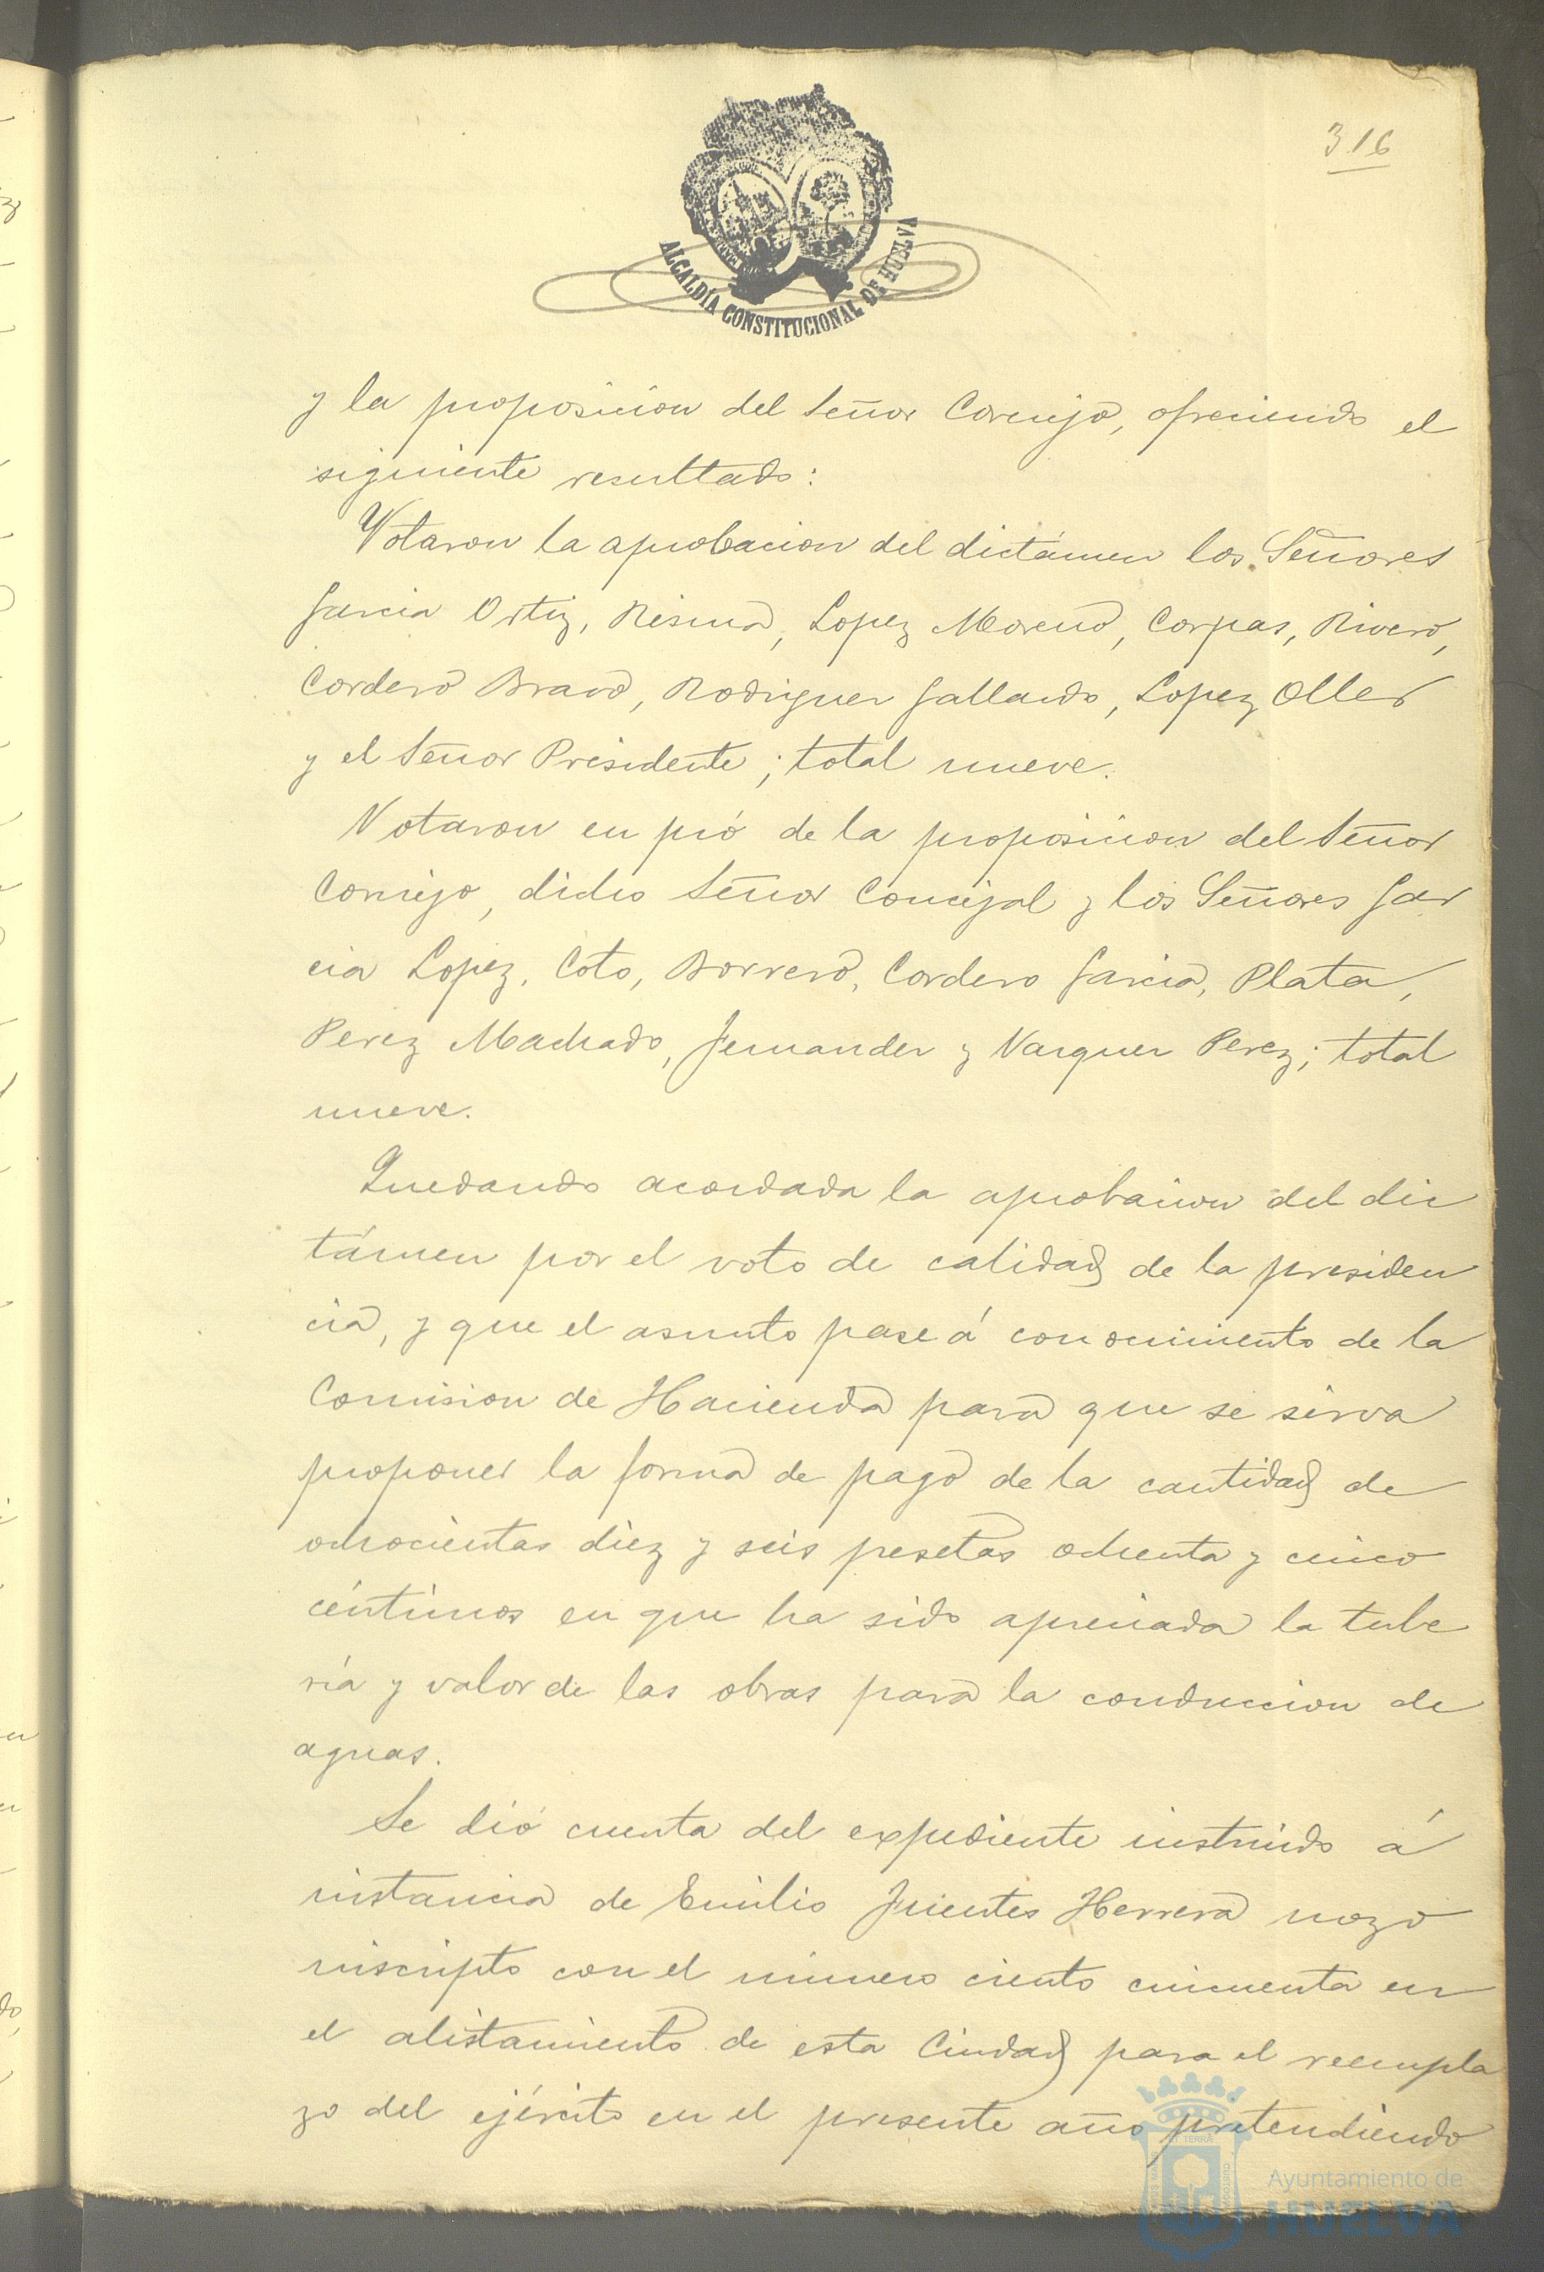 316
ALCALDÍA CONSTITUCIONAL DE HUELVA
y la proposicion del Señor Cornejo, ofreciendo el
siguiente resultado:
Votaron la aprobacion del dictámen los Señores
Garcia Ortiz, Resina, Lopez Moreno, Corpas, Rivero,
Cordero Bravo, Rodriguez Gallardo, Lopez Oller
y el Señor Presidente; total nueve.
Votaron en pró de la proposicion del Señor
Cornejo, dicho Señor Concejal y los Señores Gar
cia Lopez, Coto, Borrero, Cordero Garcia, Plata,
Perez Machado, Fernandez y Vazquez Perez; total
nueve.
Quedando acordada la aprobacion del dic
támen por el voto de calidad de la presiden
cia, y que el asunto pase á conocimiento de la
Comision de Hacienda para que se sirva
proponer la forma de pago de la cantidad de
ochocientas diez y seis pesetas ochenta y cinco
céntimos en que ha sido apreciada la tube
ría y valor de las obras para la conduccion de
aguas.
Se dió cuenta del expediente instruido á
instancia de Emilio Fuentes Herrera mozo
inscripto con el número ciento cincuenta en
el alistamiento de esta Ciudad para el reempla
zo del ejército en el presente año pretendiendo
Ayuntamiento de
HUELVA